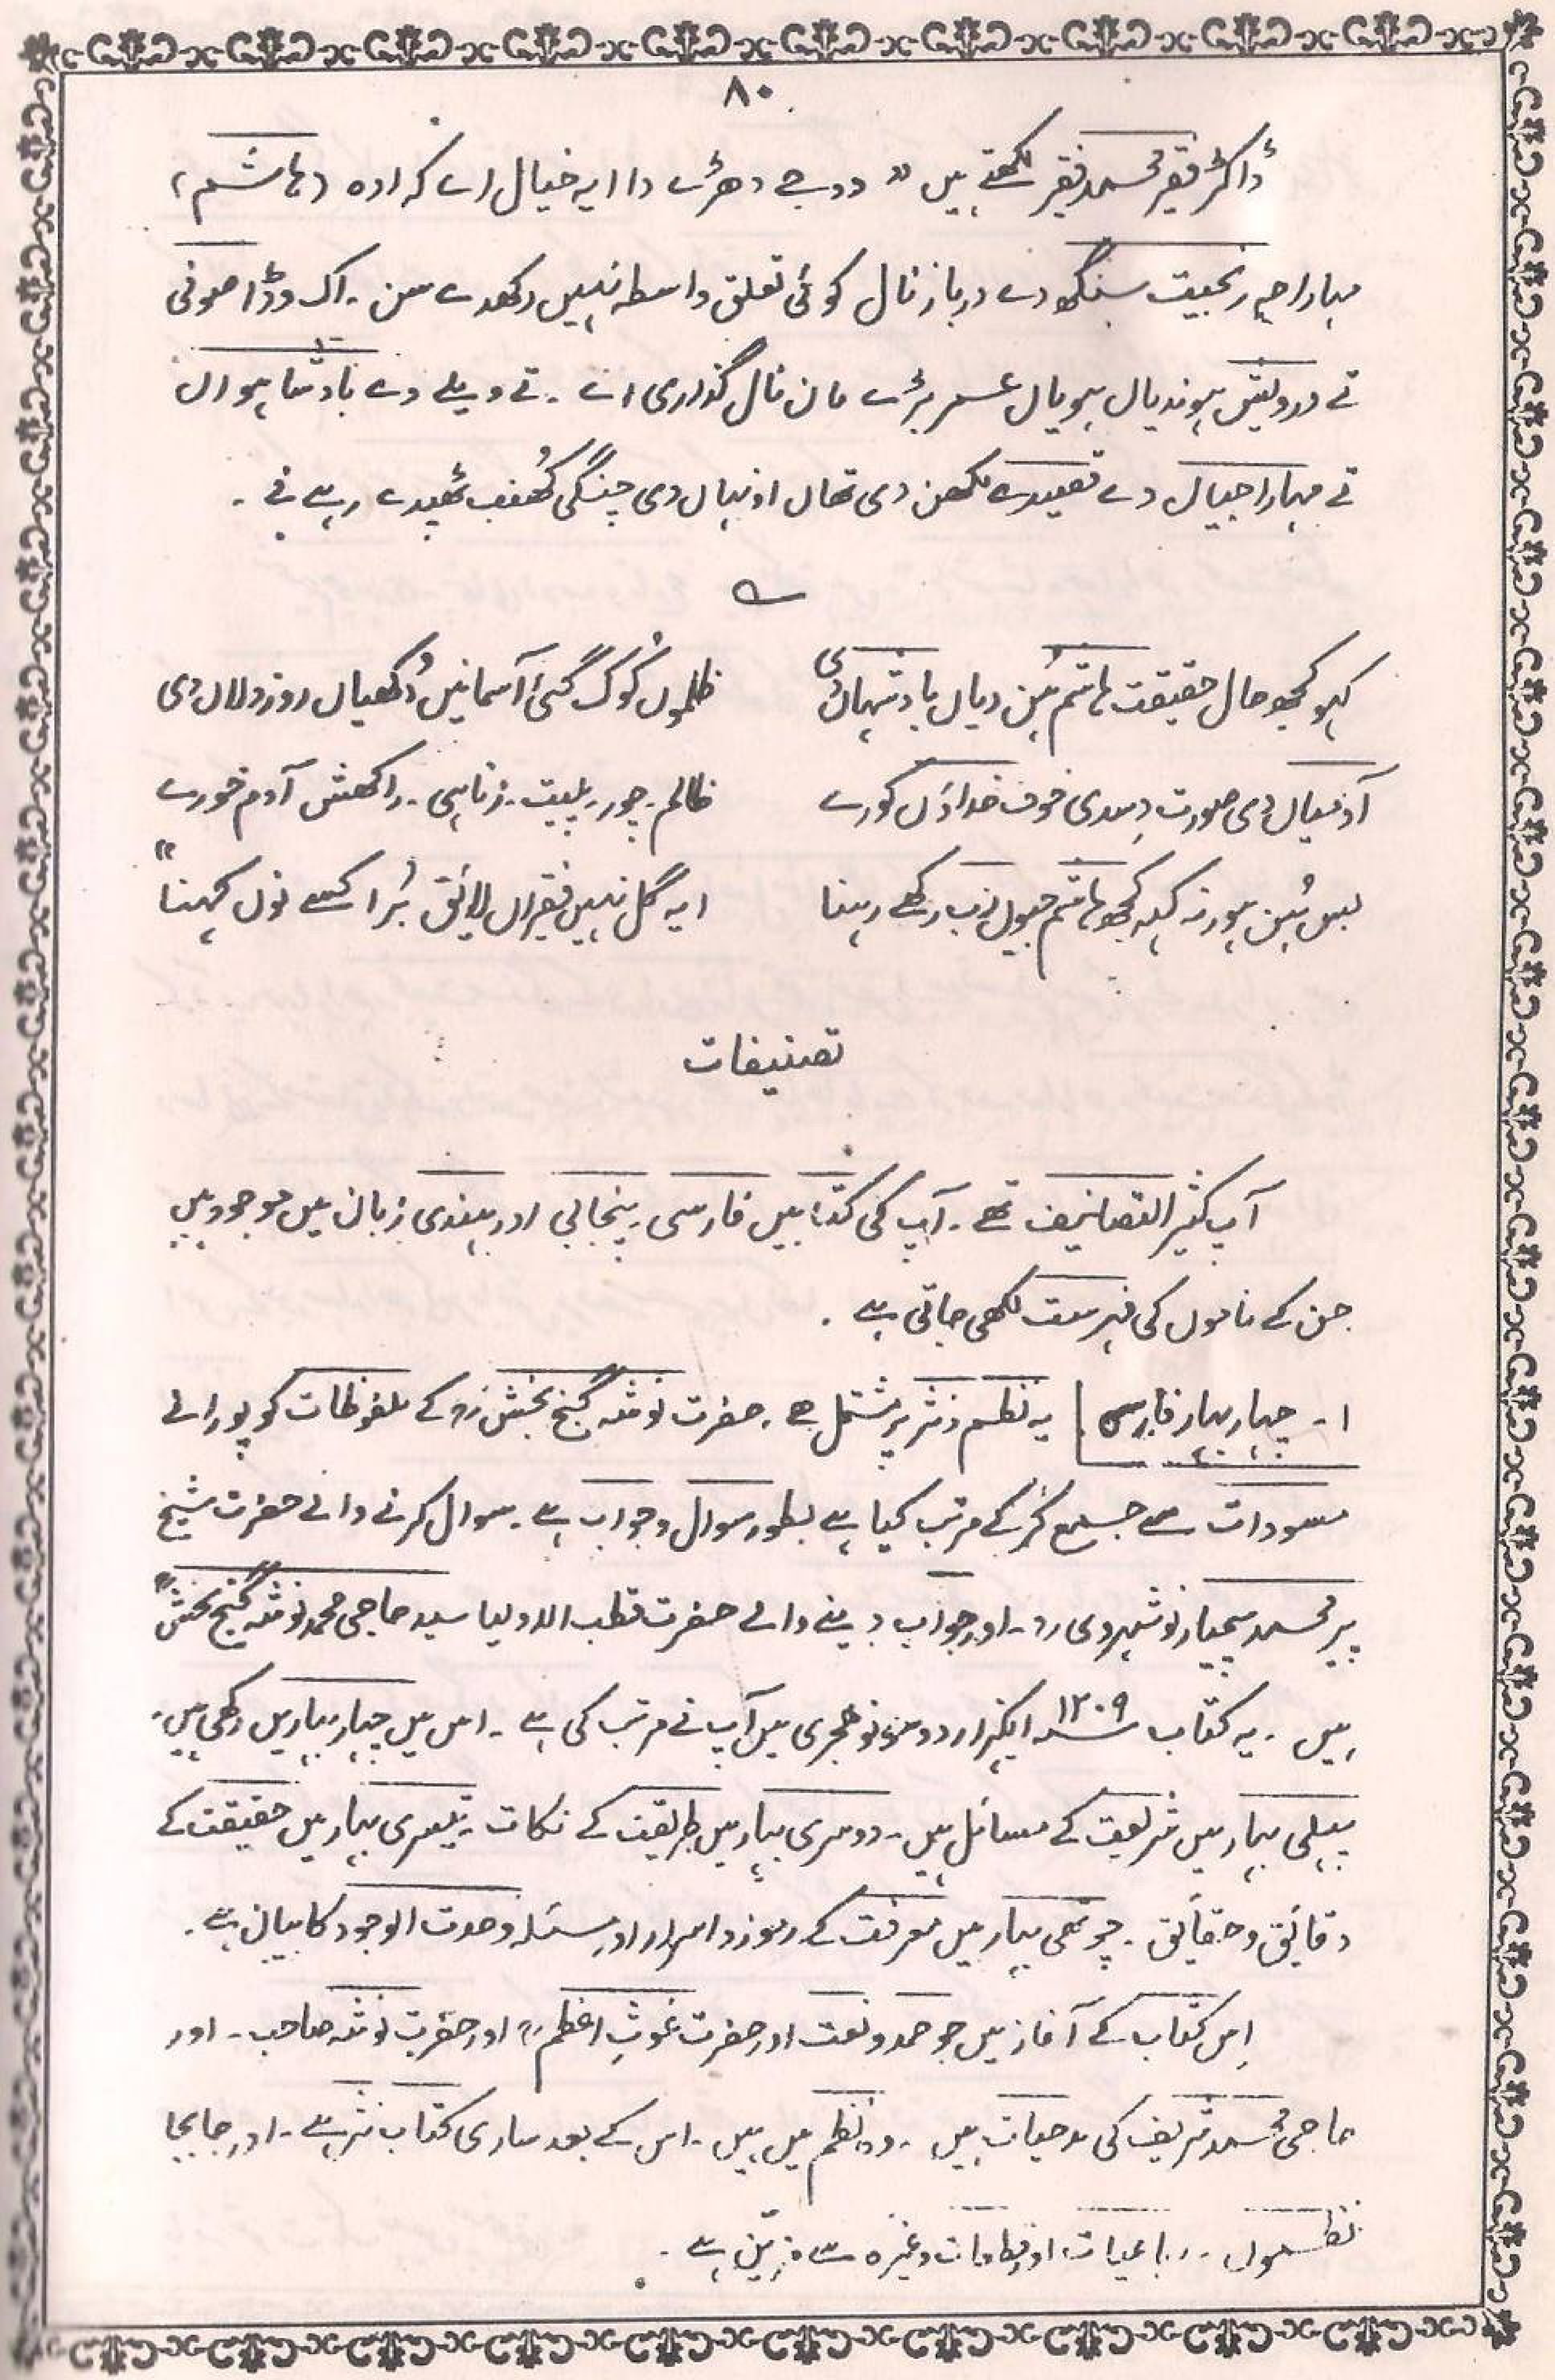 ۸۰
ڈاکٹر فقیر محمد فقیر لکھتے ہیں " دوجے دھڑے دا ایہ خیال اے کہ اوہ (ہاشم)
مہاراجہ رنجیت سنگھ دے دربار نال کوئی تعلق واسطہ نہیں رکھدے سن ۔ اک وڈا صوفی
تے درویش ہوندیاں ہویاں عمر بڑے مان نال گذاری اے ۔ تے ویلے دے بادشاہواں
تے مہاراجیاں دے قصیدے لکھن دی تھاں اونہاں دی چنگی کھُنب ٹھپدے رہے نے ۔
؂
کہو کچھ حال حقیقت ہاشم ہُن دیاں بادشہاں دی
ظلموں کُوک گئی آسمانیں دُکھیاں روز دلاں دی
آدمیاں دی صورت دِسدی خوف خدا وَل کورے
ظالم ۔ چور ۔ پلیت ۔ زناہی ۔ راکھش آدم خورے
بس ہُن ہور نہ کہہ کجھ ہاشم جیوں رَب رکھے رہنا
ایہ گل نہیں فقیراں لائق بُرا کسے نوں کہنا"
تصنیفات
آپ کثیر التصانیف تھے ۔ آپ کی کتابیں فارسی پنجابی اور ہندی زبان میں موجود ہیں
جن کے ناموں کی فہرست لکھی جاتی ہے ۔
۱۔ چہار بہار فارسی یہ نظم و نثر پر مشتمل ہے ۔ حضرت نوشہ گنج بخش رح کے ملفوظات کو پورانے
مسودات سے جمع کر کے مرتب کیا ہے بطور سوال و جواب ہے ۔ سوال کرنے والے حضرت شیخ
پیر محمد سچیار نوشہروی رح ۔ اور جواب دینے والے حضرت قطب الاولیا سید حاجی محمد نوشہ گنج بخش رح
ہیں ۔ یہ کتاب ۱۲۰۹ سنہ ایکہزار دو سو نو ہجری میں آپ نے مرتب کی ہے ۔ اس میں چہار بہاریں رکھی ہیں ۔
پہلی بہار میں شریعت کے مسائل ہیں ۔ دوسری بہار میں طریقت کے نکات ۔ تیسری بہار میں حقیقت کے
دقائق و حقائق ۔ چوتھی بہار میں معرفت کے رموز و اسرار اور مسئلہ وحدت الوجود کا بیان ہے ۔
اِس کتاب کے آغاز میں جو حمد و نعت اور حضرت غوثِ اعظم رح اور حضرت نوشہ صاحب ۔ اور
حاجی محمد شریف کی مدحیات ہیں ۔ وہ نظم میں ہیں ۔ اس کے بعد ساری کتاب نثر ہے ۔ اور جابجا
نظموں ۔ رباعیات اور قطعات وغیرہ سے مزیّن ہے ۔